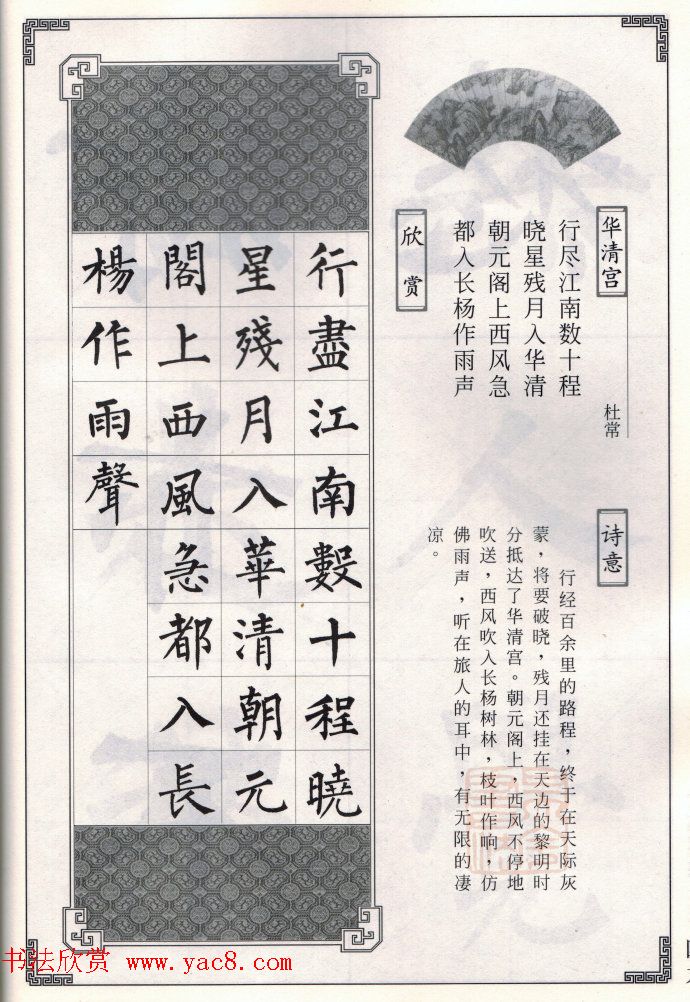 华清宫
杜常
行尽江南数十程
晓星残月入华清
朝元阁上西风急
都入长杨作雨声
诗意
行经百余里的路程，终于在天际灰
蒙，将要破晓，残月还挂在天边的黎明时
分抵达了华清宫。朝元阁上，西风不停地
吹送，西风吹入长杨树林，枝叶作响，仿
佛雨声，听在旅人的耳中，有无限的凄
凉。
欣赏
行盡江南數十程曉
星殘月入華清朝元
閣上西風急都入長
楊作雨聲
书法欣赏 www.yac8.com